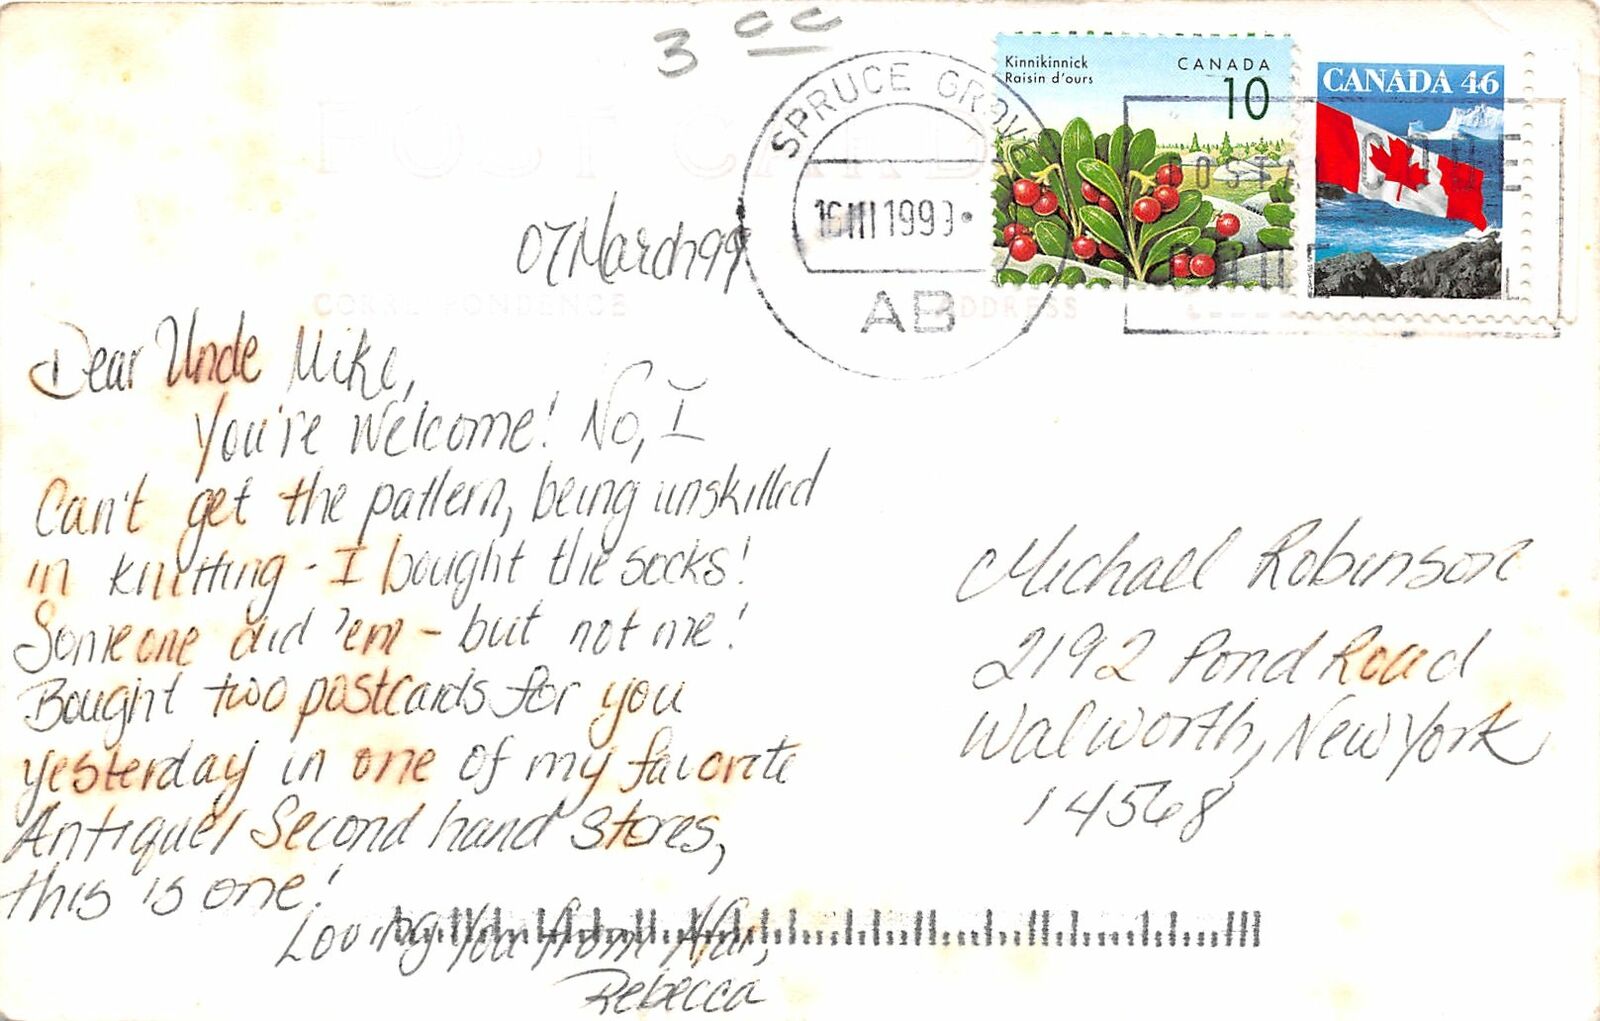 3 00
POST CARD
Kinnikinnick
Raisin d'ours
CANADA
10
CANADA 46
SPRUCE GROVE
16 III 1999
AB
POSTAL CODE
07 March 99
CORRESPONDENCE
ADDRESS
Dear Uncle Mike,
You're Welcome! No, I
Can't get the pattern, being unskilled
in knitting - I bought the socks!
Someone did 'em - but not me!
Bought two postcards for you
yesterday in one of my favorite
Antique/Second hand Stores,
this is one!
Loving You from Afar,
Rebecca
Michael Robinson
2192 Pond Road
Walworth, New York
14568